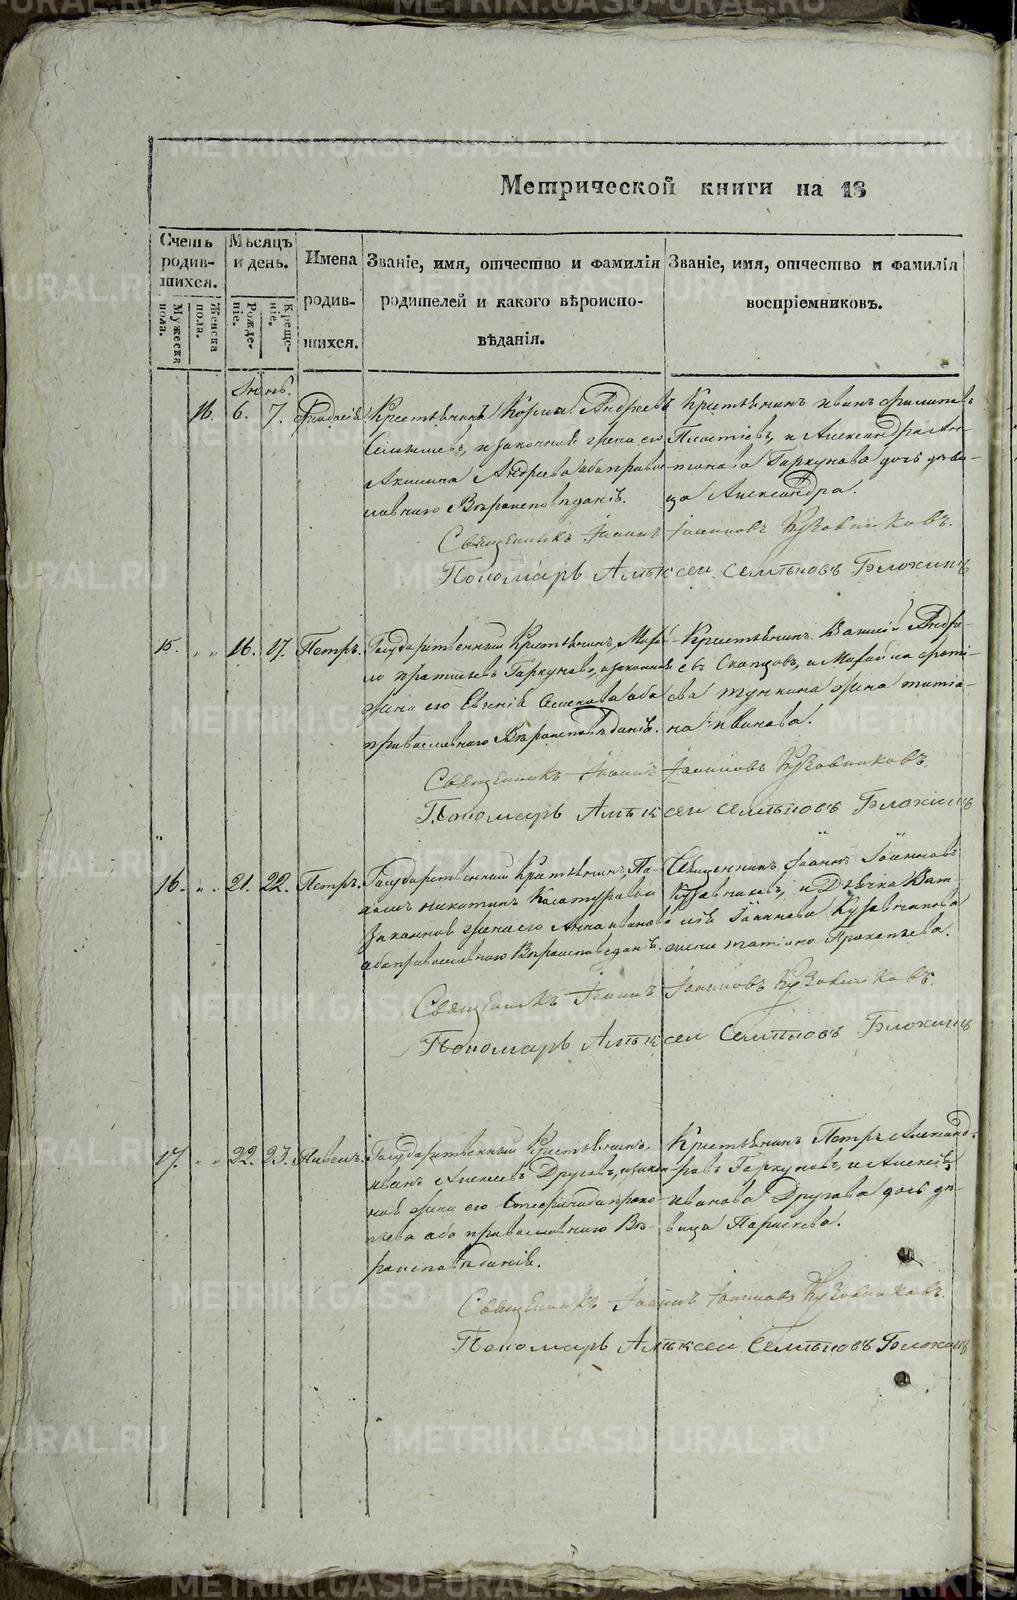 Метрической книги на 18
Счетъ родившихся.
Мужеска пола.
Женска пола.
Мѣсяцъ и день.
Рожденіе.
Крещеніе.
Имена родившихся.
Званіе, имя, отчество и фамилія
родителей и какого вѣроиспо-
вѣданія.
Званіе, имя, отчество и фамилія
воспріемниковъ.
16. 6. 7.
Крестьянинъ Козма Андреевъ
и законная жена его
Акилина Андреева оба право
славнаго Вѣроисповѣданія.
Крестьянинъ Иванъ Филипов
и Александра Ан-
тонова Гаркунова дочь дѣви-
ца Александра.
Священникъ Іоаннъ Іоанновъ Кузовниковъ.
Пономарь Алѣксеи Семѣновъ Блохинъ
15. 16. 17. Петръ.
Государственный Крестьянинъ
Гаркуновъ, и законная
жена его Евгенія Семенова оба
православнаго Вѣроисповѣданія.
Крестьянинъ Василій Андре-
евъ Скапцовъ, и
жена Татіа-
на Иванова.
Священникъ Іоаннъ Іоанновъ Кузовниковъ.
Пономарь Алѣксеи Семѣновъ Блохинъ
16. 21. 22. Петръ.
Государственный Крестьянинъ
Никитинъ
Законная жена его Анна Иванова
оба православнаго Вѣроисповеданія.
Священникъ Іоаннъ Іоанновъ
Кузовниковъ, и Дьячка Васи-
лія Іоаннова Кузовникова
жена Татіана Прокопьева.
Священникъ Іоаннъ Іоанновъ Кузовниковъ.
Пономарь Алѣксеи Семѣновъ Блохинъ
17. 22. 23. Павелъ.
Государственный Крестьянинъ
Иванъ Алексеевъ Друговъ, и закон
ная жена его Стефанида Проко-
пьева оба православнаго Вѣ-
роисповѣданія.
Крестьянинъ Петръ Александ-
ровъ Гаркуновъ, и Алексѣя
Иванова Другова дочь дѣ-
вица Параскева.
Священникъ Іоаннъ Іоанновъ Кузовниковъ.
Пономарь Алѣксеи Семѣновъ Блохинъ
METRIKI.GASO-URAL.RU